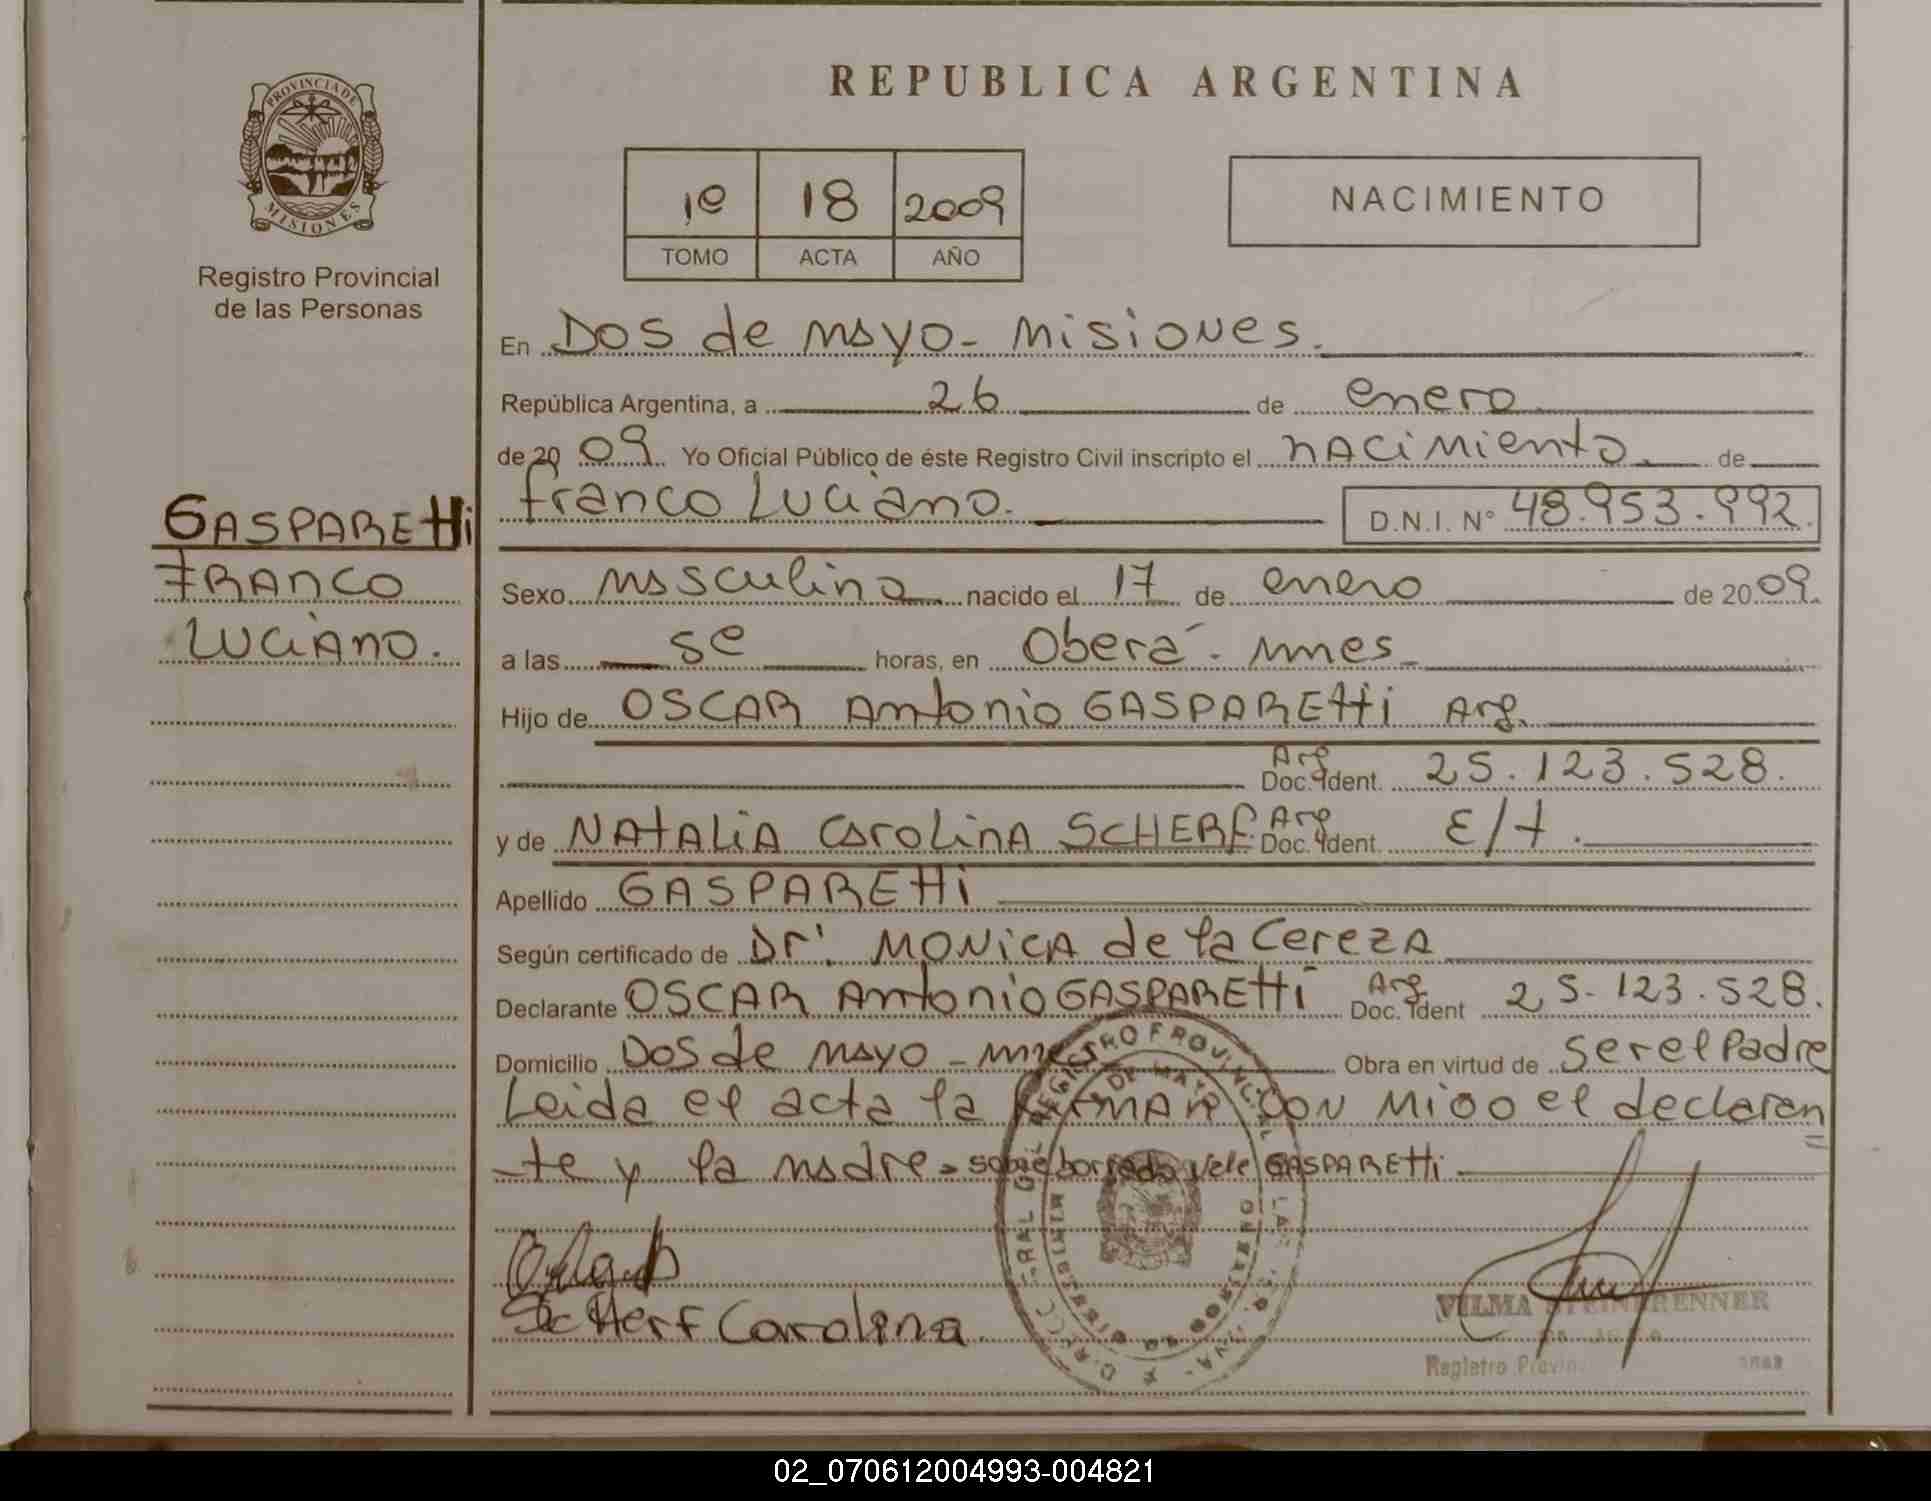 REPUBLICA ARGENTINA
PROVINCIA DE
MISIONES
Registro Provincial
de las Personas
1º 18 2009
TOMO ACTA AÑO
NACIMIENTO
En Dos de mayo - Misiones.
República Argentina, a 26 de enero
de 20 09 Yo Oficial Público de éste Registro Civil inscripto el nacimiento de
franco Luciano. D.N.I. Nº 48.953.992.
GASPARETTI
FRANCO
LUCIANO.
Sexo masculino nacido el 17 de enero de 20 09.
a las se horas, en Oberá - mnes
Hijo de OSCAR Antonio GASPARETTI Arg.
Arg
Doc. Ident. 25.123.528.
y de NATALIA CAROLINA SCHERF Arg Doc. Ident. E/t.
Apellido GASPARETTI
Según certificado de Dr. MONICA de la Cereza
Declarante OSCAR Antonio GASPARETTI Arg Doc. Ident 25.123.528.
Domicilio Dos de mayo - mnes Obra en virtud de ser el Padre
Leida el acta la FIRMAN CON MIGO el declaran
te y la madre - sobre borrado vale GASPARETTI
ScHerf Carolina
VILMA STEINBRENNER
Registro Provin
02_070612004993-004821